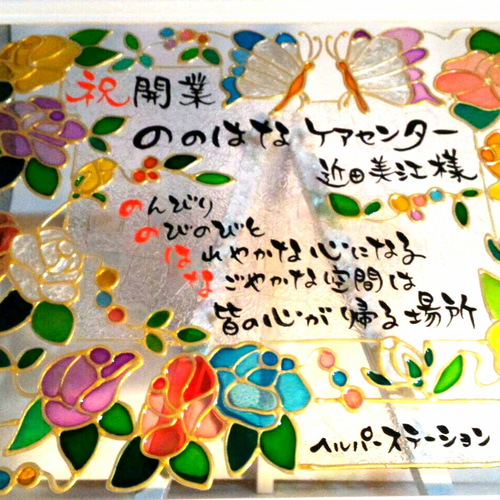 祝開業
ののはなケアセンター
近田美江様
のんびり
のびのびと
はれやかな心になる
なごやかな空間は
皆の心が帰る場所
ヘルパーステーション